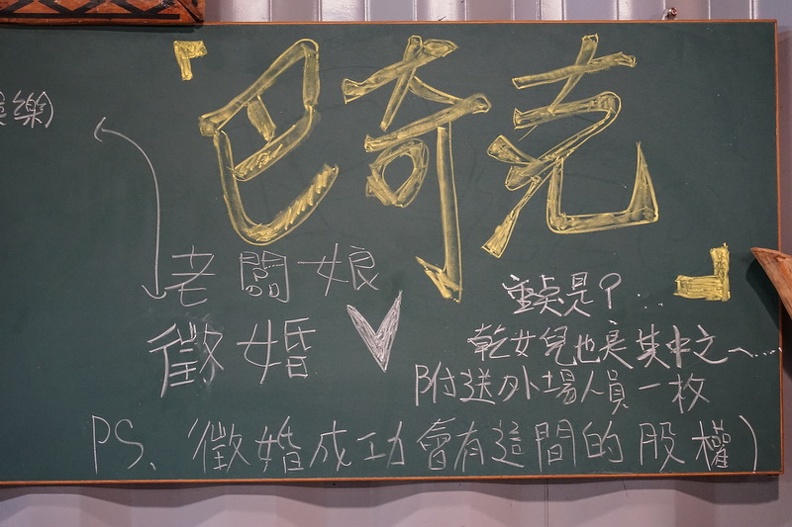 「巴奇克」
樂)
老闆娘
徵婚
重點是?...
乾女兒也是其中之一....
附送外場人員一枚
PS.(徵婚成功會有這間的股權)